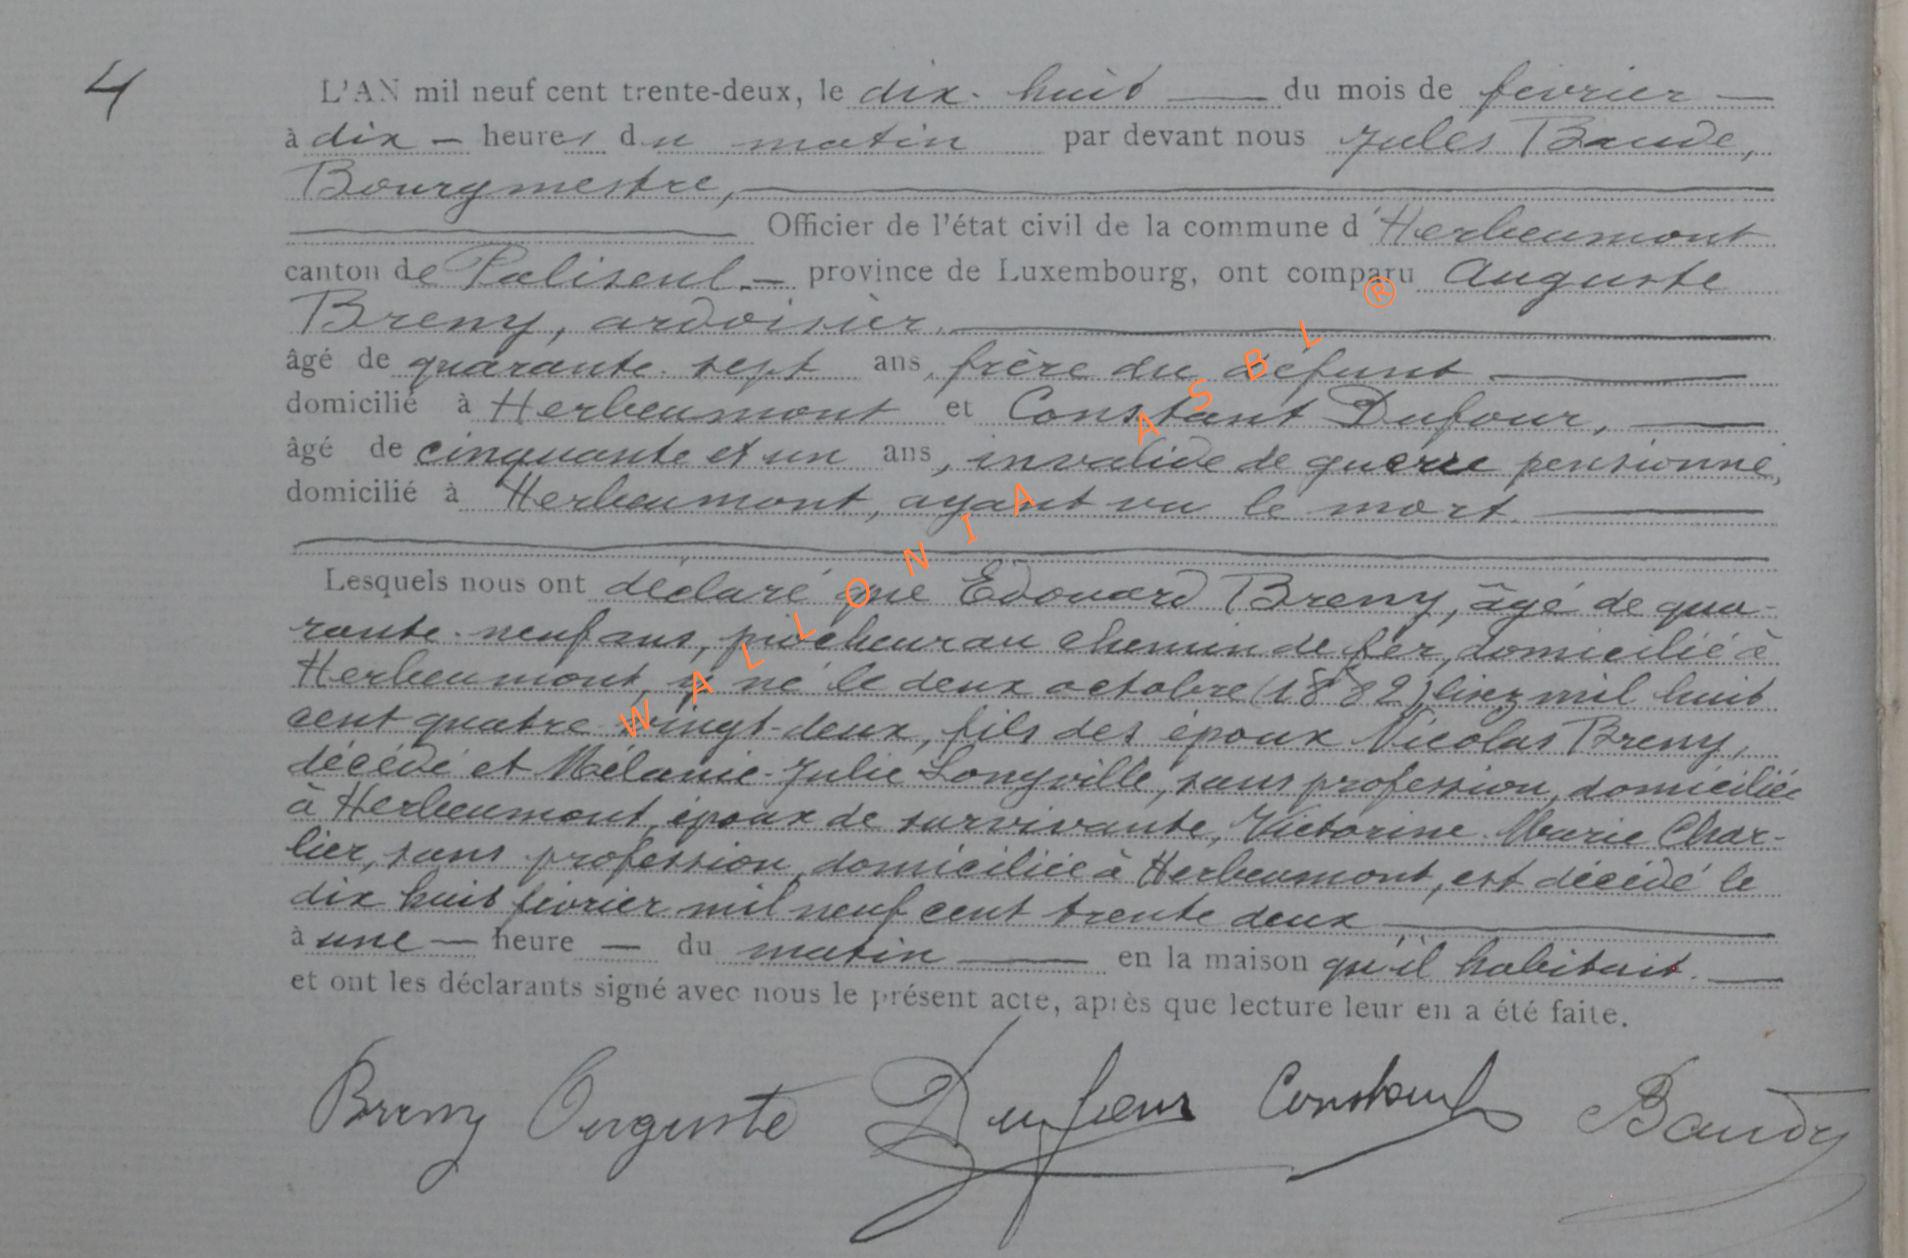 4
L'AN mil neuf cent trente-deux, le dix-huit du mois de février
à dix heures du matin par devant nous Jules Baude,
Bourgmestre,
Officier de l'état civil de la commune d'Herbeumont
canton de Paliseul province de Luxembourg, ont comparu Auguste
Breny, ardoisier,
âgé de quarante-sept ans, frère du défunt
domicilié à Herbeumont et Constant Dufour,
âgé de cinquante et un ans, invalide de guerre pensionné,
domicilié à Herbeumont, ayant vu le mort
Lesquels nous ont déclaré que Edouard Breny, âgé de qua-
rante-neuf ans, piocheur au chemin de fer, domicilié à
Herbeumont, y né le deux octobre (1882) lisez mil huit
cent quatre vingt-deux, fils des époux Nicolas Breny,
décédé et Mélanie-Julie Longville, sans profession, domiciliée
à Herbeumont, époux de survivante, Victorine Marie Char-
lier, sans profession, domiciliée à Herbeumont, est décédé le
dix huit février mil neuf cent trente deux
à une heure du matin en la maison qu'il habitait.
et ont les déclarants signé avec nous le présent acte, après que lecture leur en a été faite.
Breny Auguste Dufour Constant Baude
WALLONIA ASBL ®